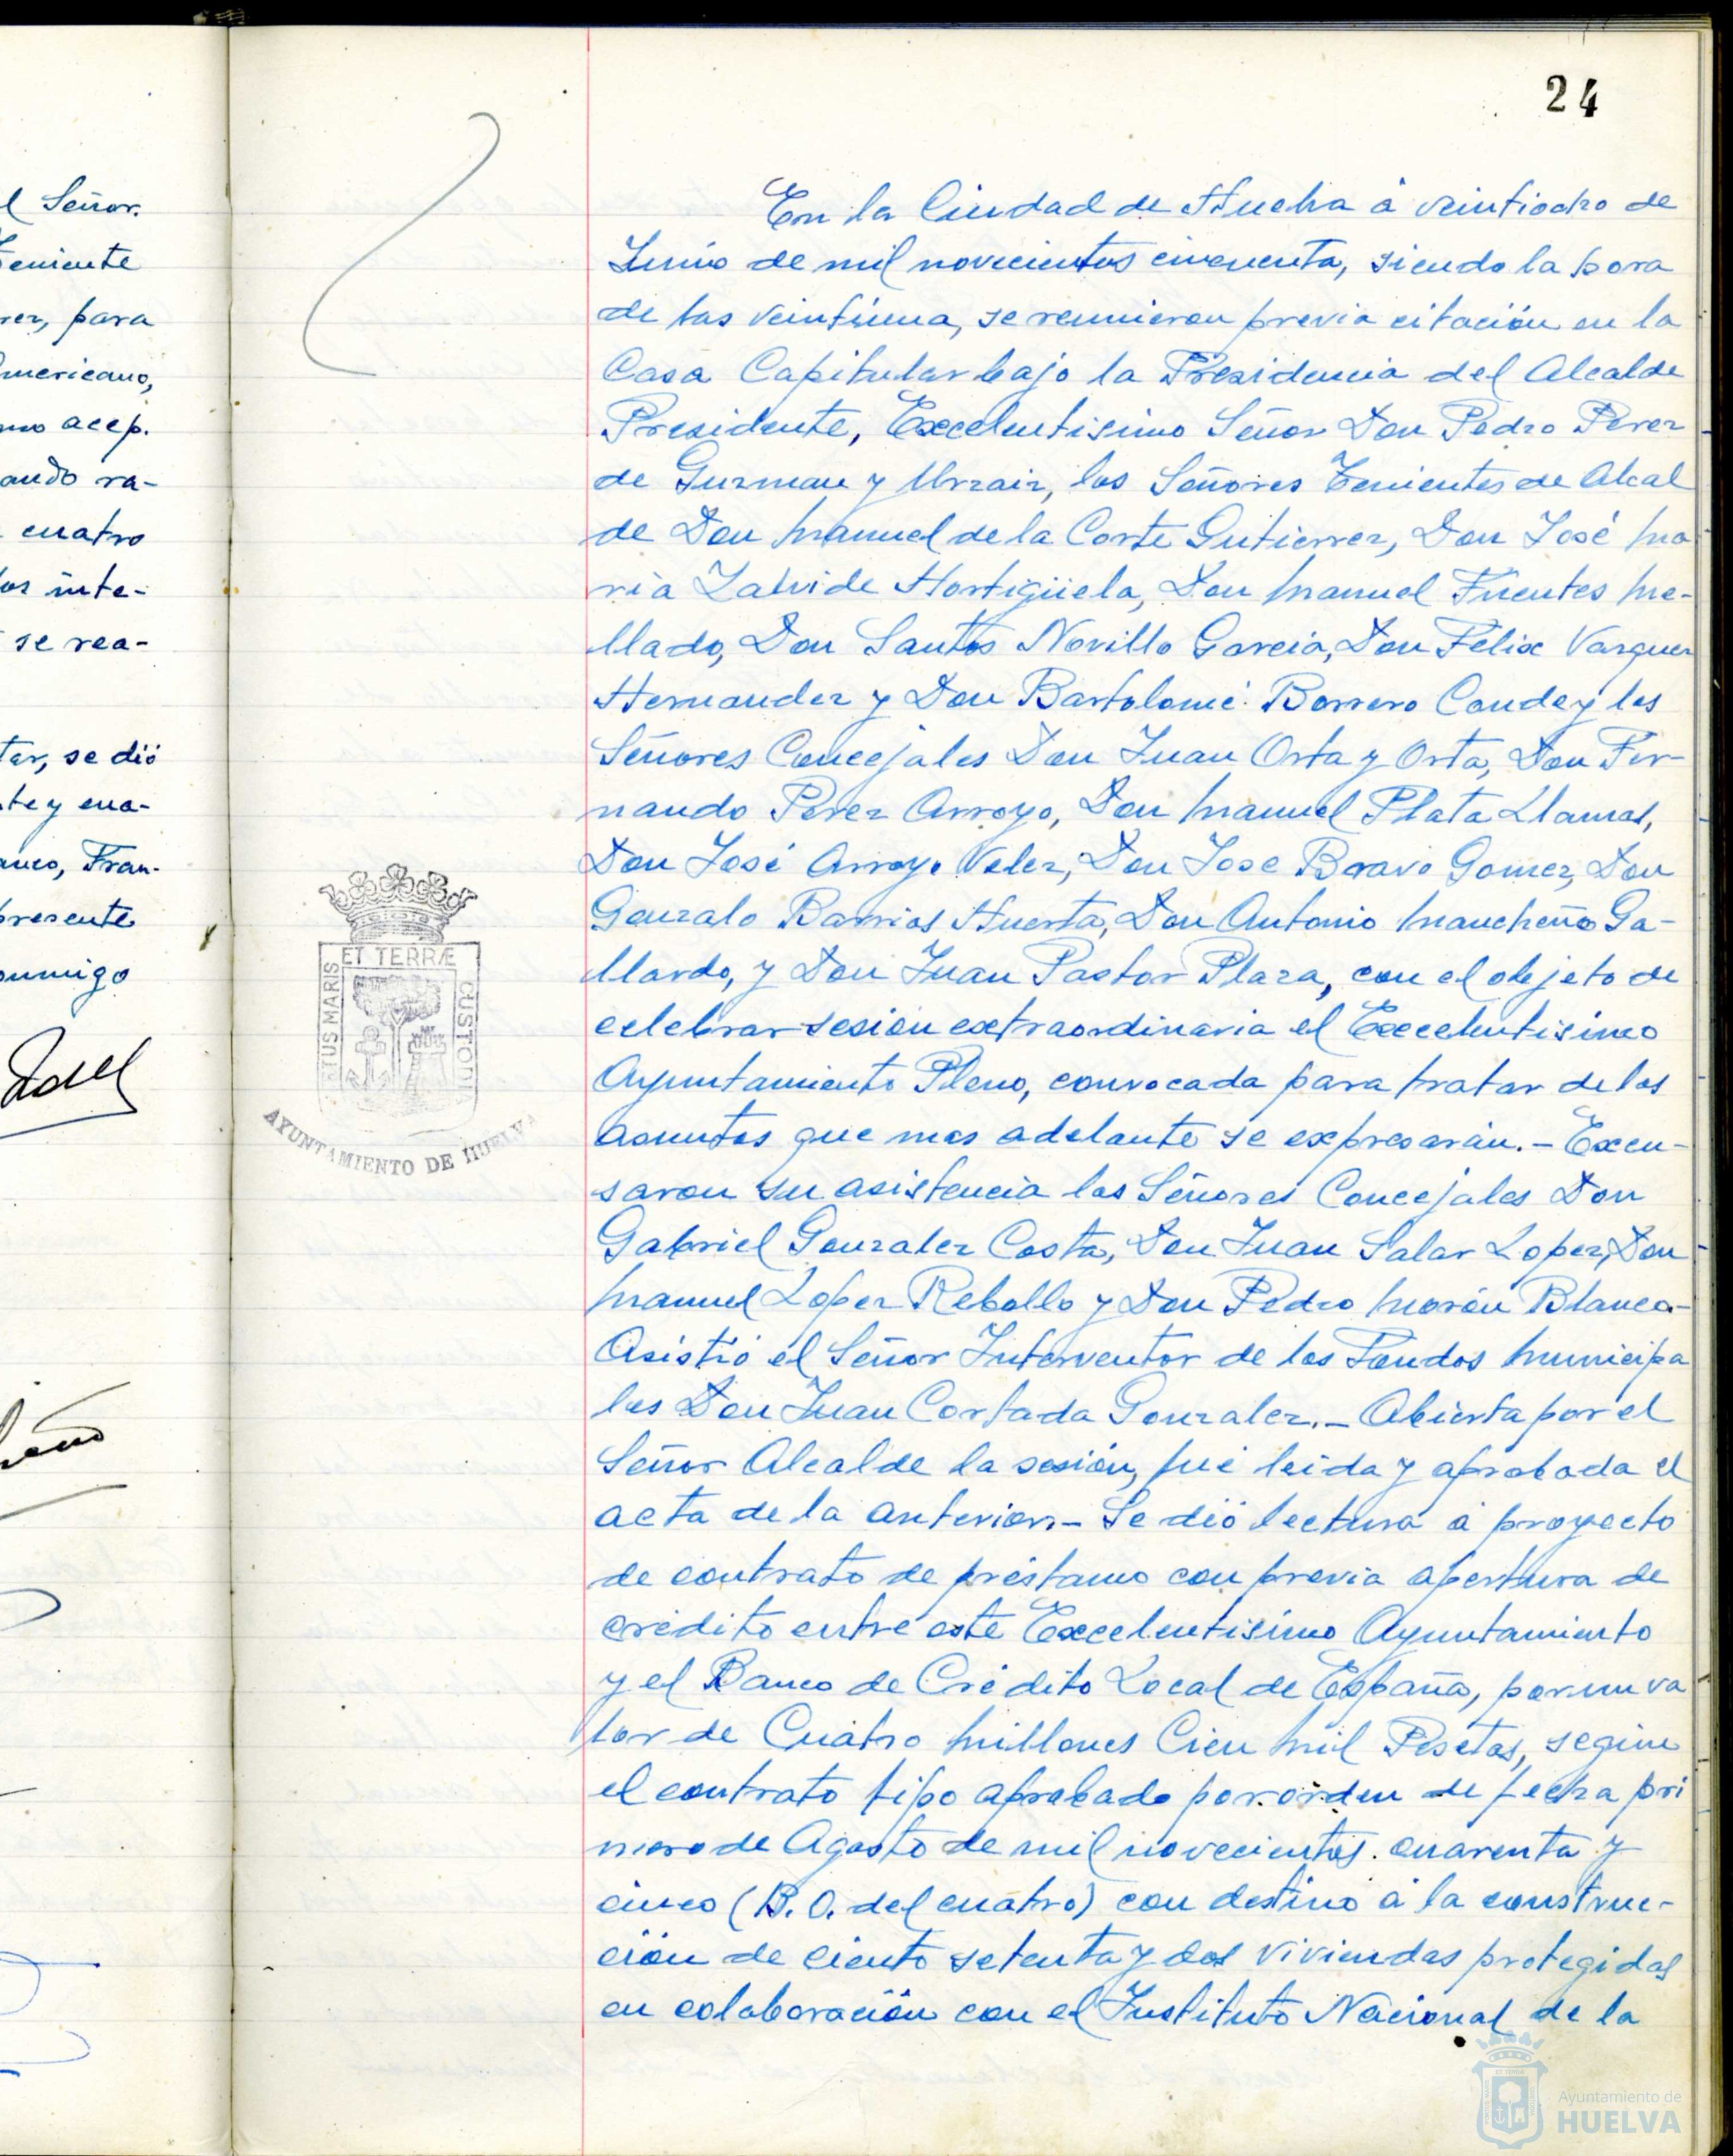 24
l Señor.
Teniente
rez, para
mericano,
mo acep.
ando ra-
cuatro
los inte-
se rea-
tar, se dió
te y cua-
anco, Fran-
presente
onmigo
En la Ciudad de Huelva á veintiocho de
Junio de mil novecientos cincuenta, siendo la hora
de las veintiuna, se reunieron previa citación en la
Casa Capitular bajo la Presidencia del Alcalde
Presidente, Excelentisimo Señor Don Pedro Perez
de Guzman y Urzaiz, los Señores Tenientes de Alcal
de Don Manuel de la Corte Gutierrez, Don José Ma
ria Zalvide Hortigüela, Don Manuel Fuentes Me-
llado, Don Santos Novillo Garcia, Don Felix Vazquez
Hernandez y Don Bartolomé Borrero Conde y los
Señores Concejales Don Juan Orta y Orta, Don Fer-
nando Perez Arroyo, Don Manuel Plata Llamas,
Don José Arroyo Velez, Don Jose Bravo Gomez, Don
Gonzalo Barrios Huerta, Don Antonio Mancheño Ga-
llardo, y Don Juan Pastor Plaza, con el objeto de
celebrar sesión extraordinaria el Excelentisimo
Ayuntamiento Pleno, convocada para tratar de los
asuntos que mas adelante se expresarán.- Excu-
saron su asistencia los Señores Concejales Don
Gabriel Gonzalez Costa, Don Juan Salar Lopez, Don
Manuel Lopez Rebollo y Don Pedro Morón Blanco-
Asistió el Señor Interventor de los Fondos Municipa
les Don Juan Cortada Gonzalez.- Abierta por el
Señor Alcalde la sesión, fué leida y aprobada el
acta de la anterior.- Se dió lectura á proyecto
de contrato de préstamo con previa apertura de
crédito entre este Excelentisimo Ayuntamiento
y el Banco de Crédito Local de España, por un va
lor de Cuatro Millones Cien Mil Pesetas, según
el contrato tipo aprobado por orden de fecha pri
mero de Agosto de mil novecientos cuarenta y
cinco (B. O. del cuatro) con destino á la construc-
ción de ciento setenta y dos viviendas protegidas
en colaboración con el Instituto Nacional de la
ET TERRÆ
RTUS MARIS
CUSTODI
AYUNTAMIENTO DE HUELVA
Ayuntamiento de
HUELVA